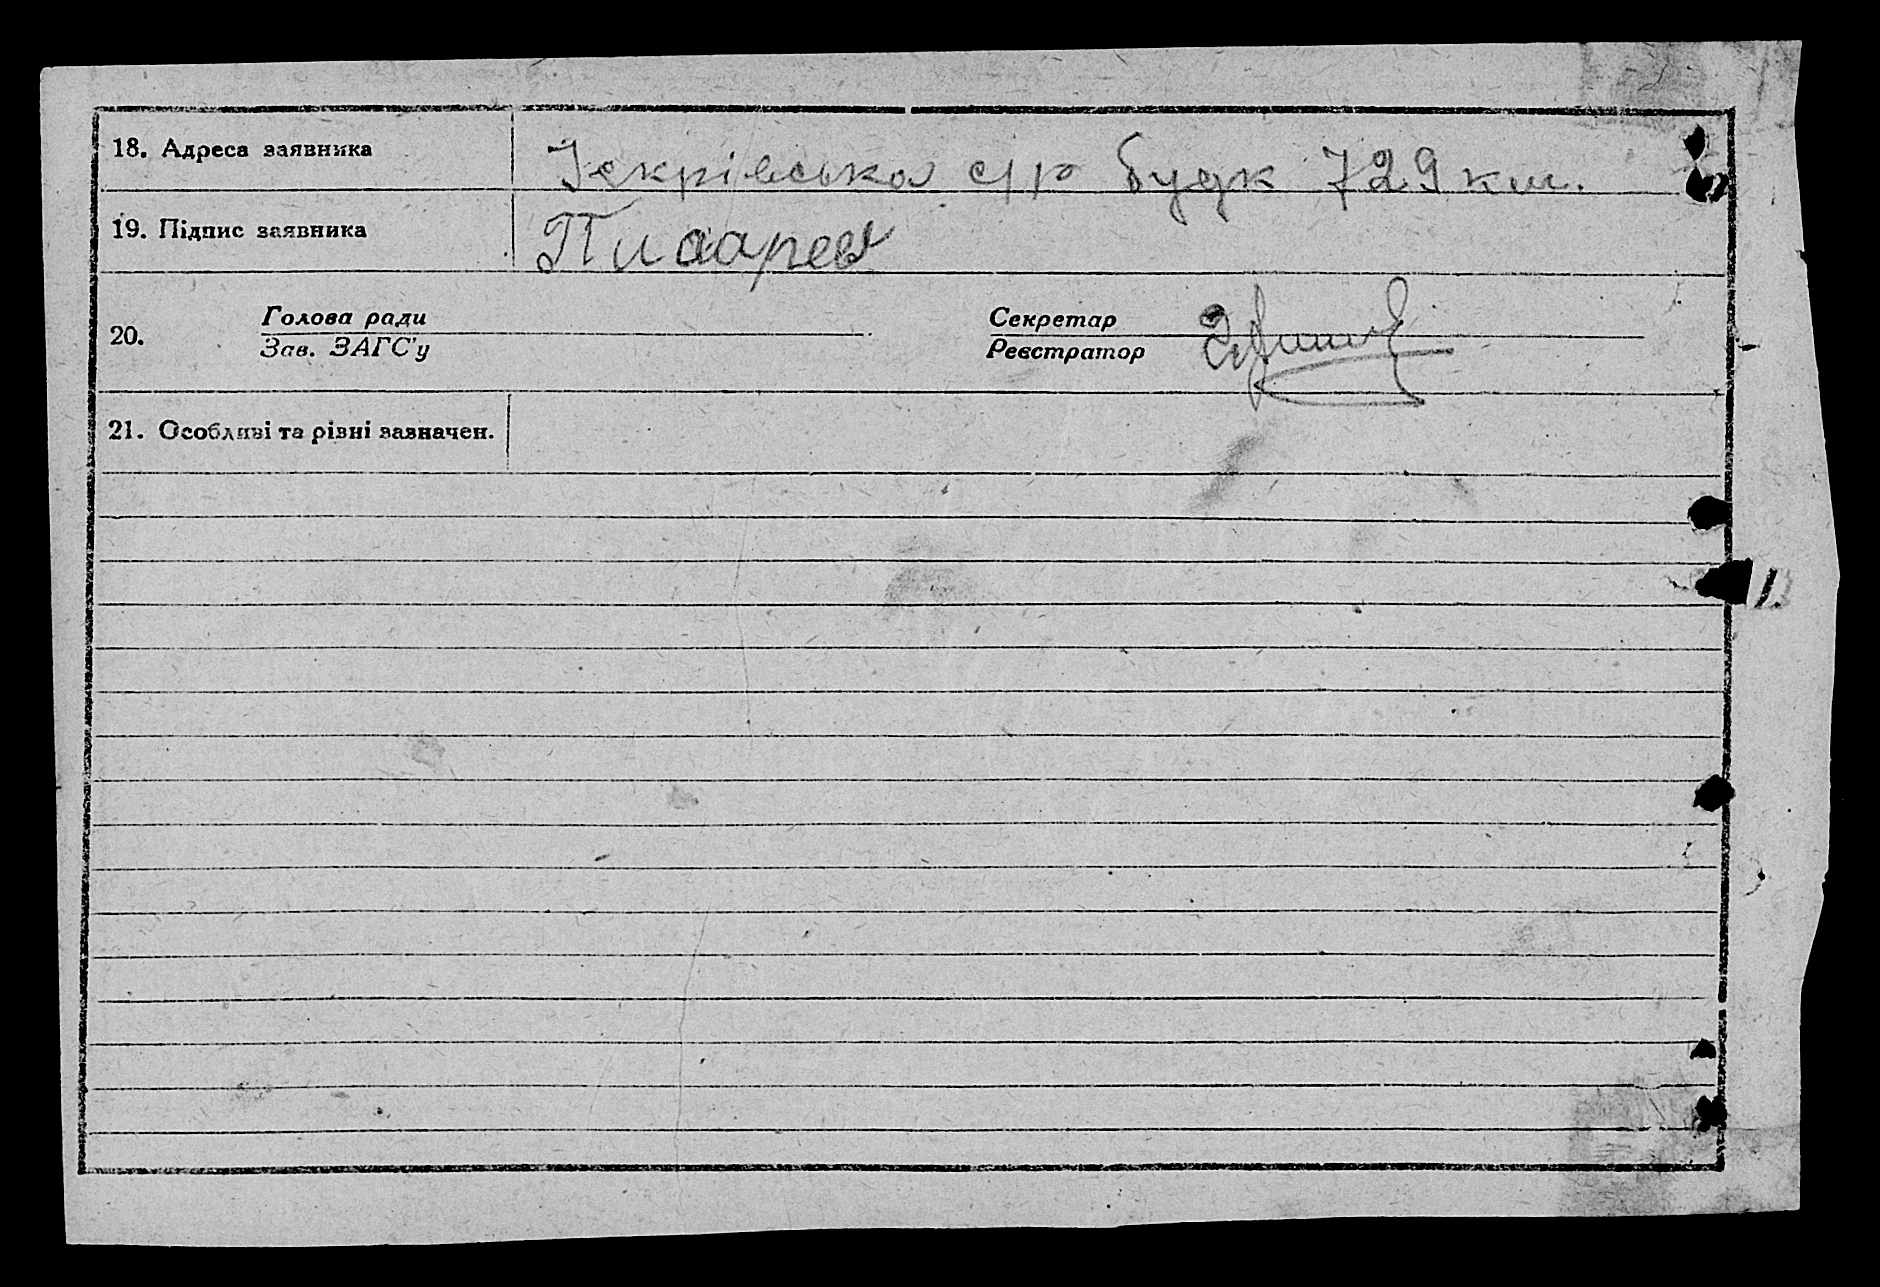 18. Адреса заявника Іскрівська с/р будк 729 км.
19. Підпис заявника Писарев
20. Голова ради Секретар
Зав. ЗАГС'у Реєстратор
21. Особливі та рівні зазначен.